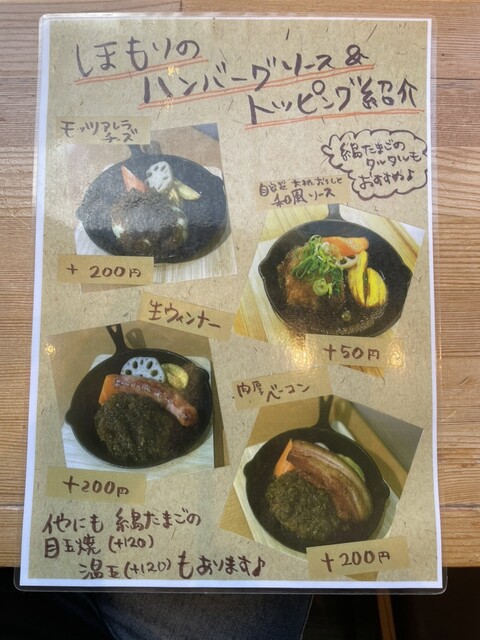 ほもりの
ハンバーグソース&
トッピング紹介
モッツァレラ
チーズ
+200円
絹たまごの
タルタルも
おすすめよ
自家製 大根おろしと
和風ソース
+50円
生ウィンナー
+200円
肉厚
ベーコン
+200円
他にも 絹たまごの
目玉焼(+120)
温玉(+120)もあります♪